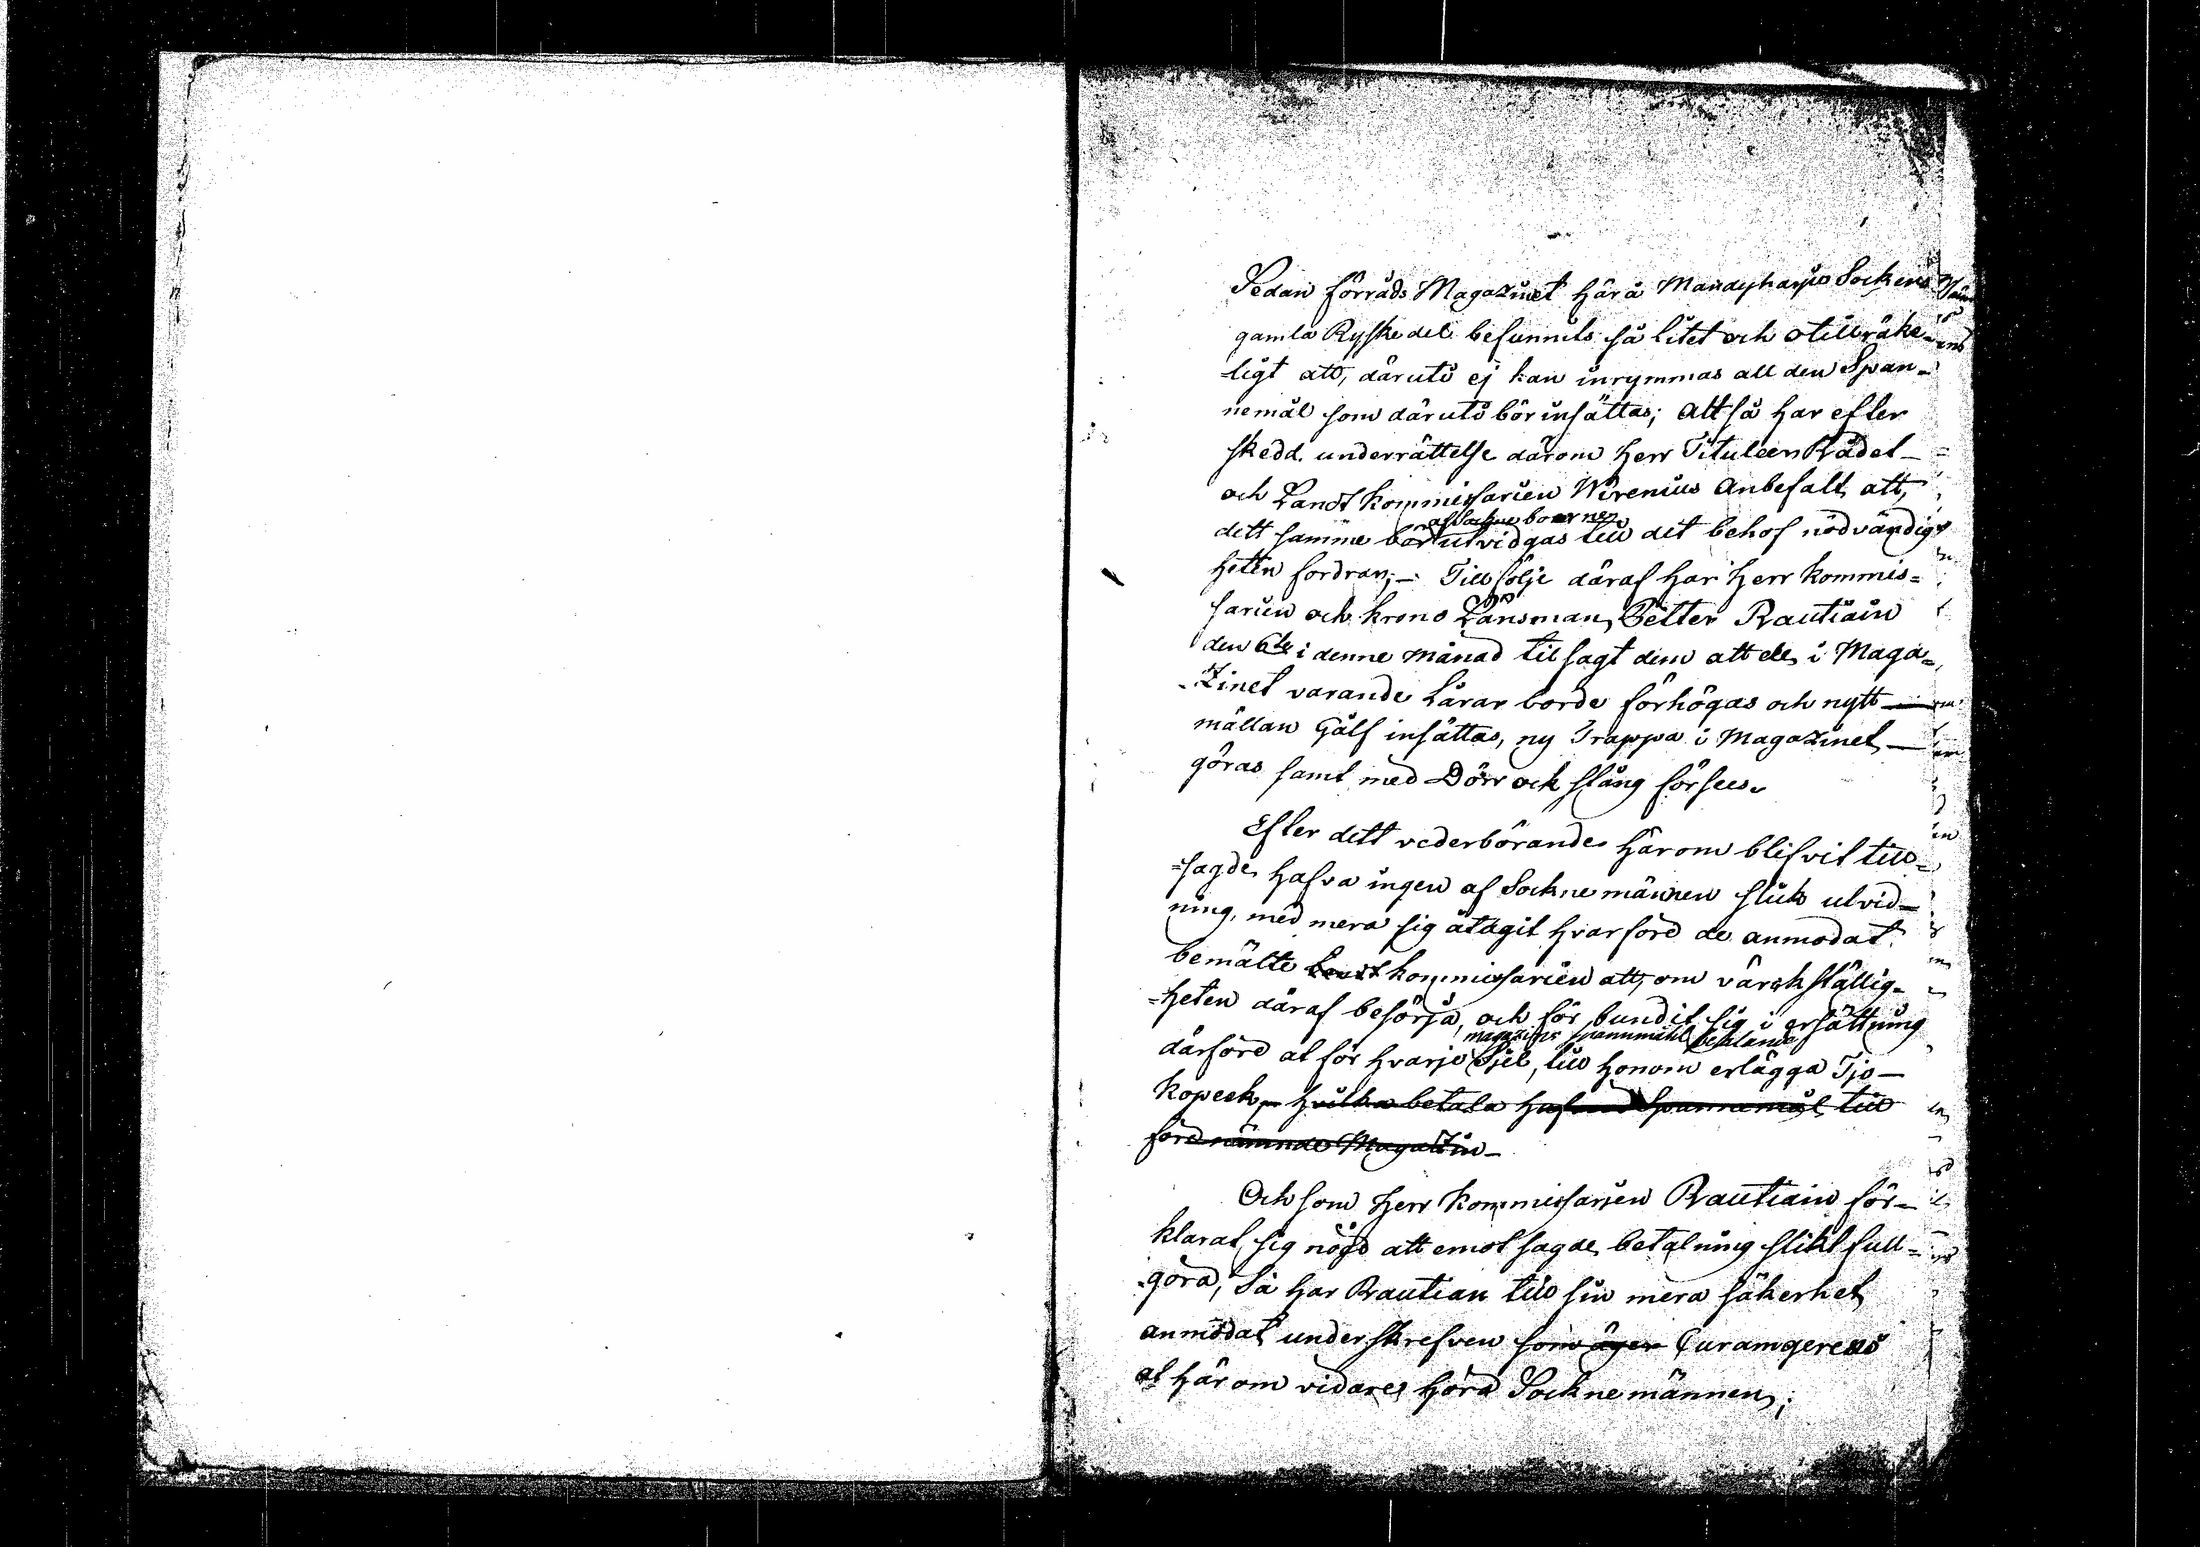 Sedan förråds Magazinet här å Mandyharjus Sockens
gamla Ryske del befunnits så litet och otillräke-
ligt att, däruti ej kan inrymmas all den Span-
nemål som däruti bör insättas; Altså har efter
skedd underrättelse därom Herr Tituleer Rådet
och Landt kommissarien Wirenius Anbefalt, att,
af Sockne boerne
dett samme bör utvidgas till det behof nödvändig
heten fordrar;- Till följe däraf har Herr kommis-
sarien och krono Länsman, Petter Rautiain
den 6te i denne månad tilsagt dem att de, i Maga-
-Zinet varande Lårar borde förhögas och nytt
mällan Gålf insättas, ny Trappa i Magazinet,
göras samt med Dörr och stång förses.
Efter dett vederbörande härom blifvit till-
=sagde, hafva ingen af Sockne männen slik utvid-
ning, med mera sig åtagit hvarföre de anmodat
bemälte Landt kommissarien att, om värckställig-
=heten däraf besörja, och för bundit sig i ersättning
magazins spannmåhl betalande
därföre at för hvarje Sjel, till honom erlägga Tjo-
kopeek, hvilka betala hafva Spannemål, till
förenämnde Magazin-
Och som Herr Kommissarien Rautiain för-
klarat, sig nögd att emot sagde, betalning slikt full-
göra, Så har Rautian till sin mera säkerhet,
anmodat underskrefven som äger
at här om vidare, höra Sockne männen;